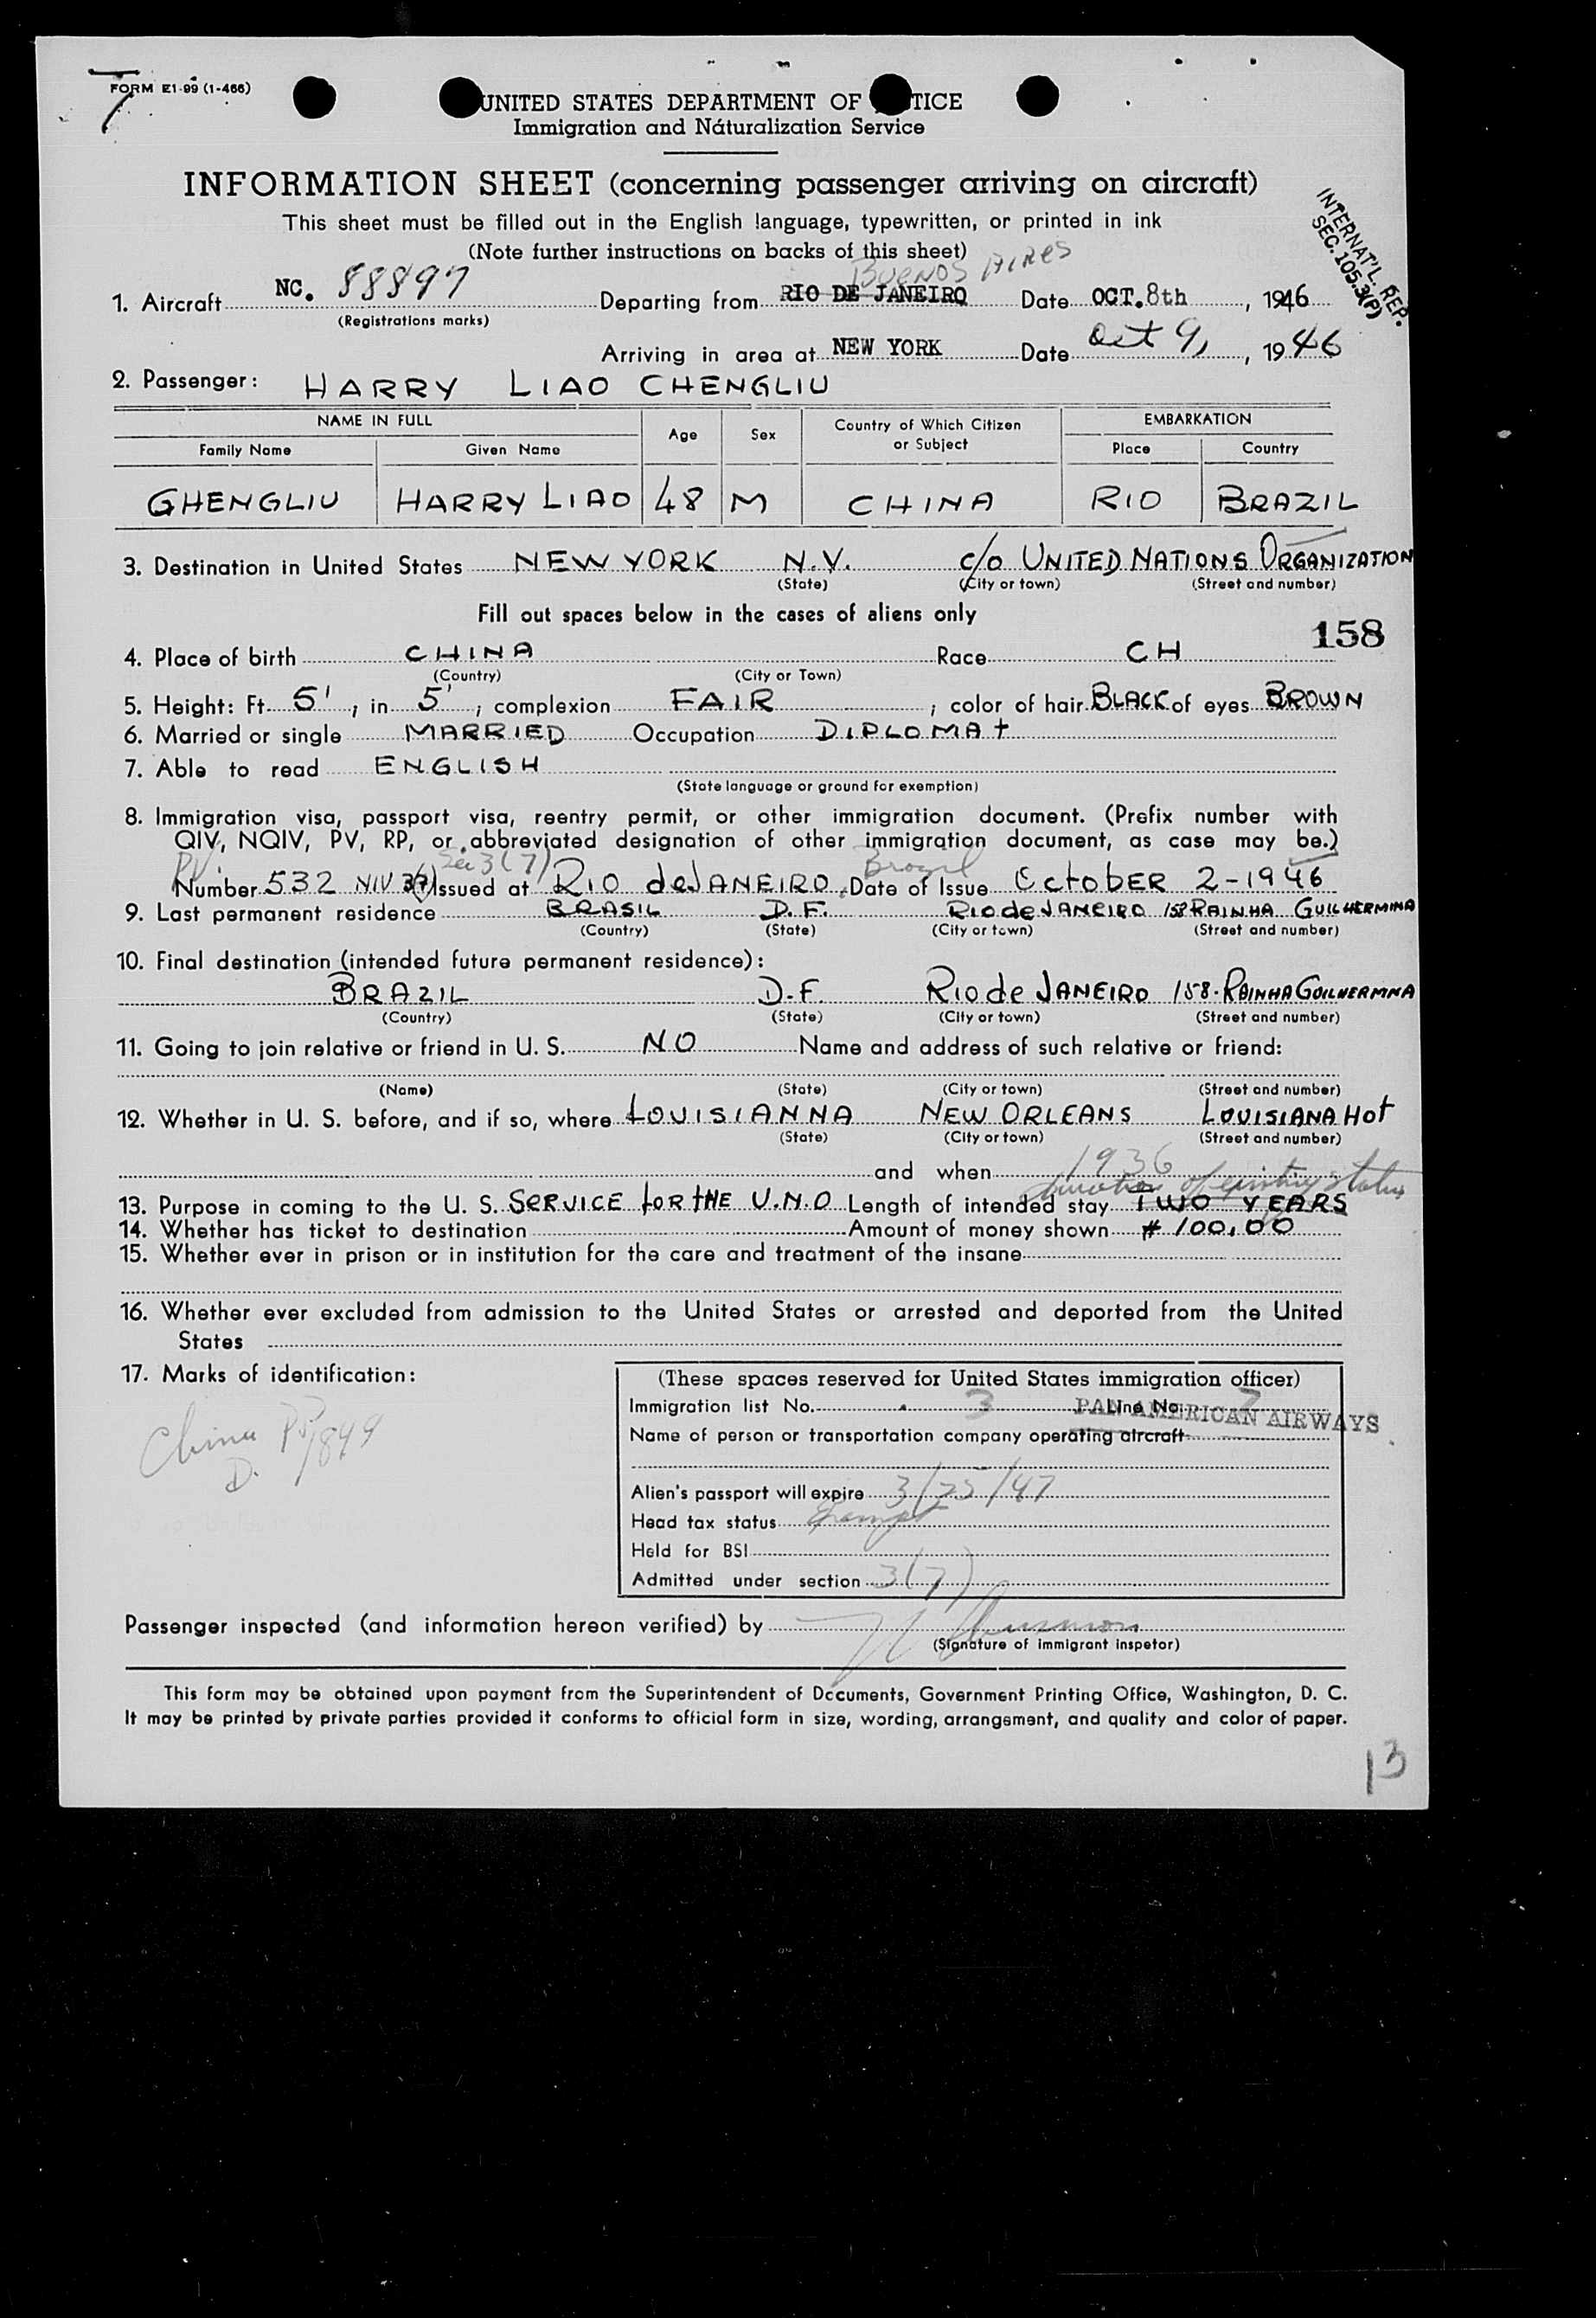 FORM E1-99 (1-466)
UNITED STATES DEPARTMENT OF TICE
Immigration and Naturalization Service
INFORMATION SHEET (concerning passenger arriving on aircraft)
This sheet must be filled out in the English language, typewritten, or printed in ink
(Note further instructions on backs of this sheet)
INTERNAT'L. REP.
SEC. 105.3(P)
Buenos Aires
1. Aircraft NC. 88897 Departing from RIO DE JANEIRO Date OCT. 8th, 1946
(Registrations marks)
Arriving in area at NEW YORK Date Oct 9, 1946
2. Passenger: HARRY LIAO CHENGLIU
NAME IN FULL Age Sex Country of Which Citizen or Subject EMBARKATION
Family Name Given Name Place Country
GHENGLIU HARRY LIAO 48 M CHINA RIO BRAZIL
3. Destination in United States NEW YORK N.V. c/o UNITED NATIONS ORGANIZATION
(State) (City or town) (Street and number)
Fill out spaces below in the cases of aliens only
158
4. Place of birth CHINA Race CH
(Country) (City or Town)
5. Height: Ft. 5', in 5', complexion FAIR; color of hair BLACK of eyes BROWN
6. Married or single MARRIED Occupation DIPLOMAT
7. Able to read ENGLISH
(State language or ground for exemption)
8. Immigration visa, passport visa, reentry permit, or other immigration document. (Prefix number with
QIV, NQIV, PV, RP, or abbreviated designation of other immigration document, as case may be.)
PV. Sec 3(7) Brazil
Number 532 NIV 3(7) Issued at RIO de JANEIRO Date of Issue OctobER 2-1946
9. Last permanent residence BRASIL D.F. Rio de JANEIRO 158 RAINHA GUILHERMINA
(Country) (State) (City or town) (Street and number)
10. Final destination (intended future permanent residence):
BRAZIL D.F. Rio de JANEIRO 158-RAINHA GUILHERMINA
(Country) (State) (City or town) (Street and number)
11. Going to join relative or friend in U. S. NO Name and address of such relative or friend:
(Name) (State) (City or town) (Street and number)
12. Whether in U. S. before, and if so, where LOUISIANNA NEW ORLEANS LOUISIANA Hot
(State) (City or town) (Street and number)
and when 1936
duration of status
13. Purpose in coming to the U. S. SERVICE for tHE U.N.O Length of intended stay TWO YEARS
14. Whether has ticket to destination Amount of money shown $ 100,00
15. Whether ever in prison or in institution for the care and treatment of the insane
16. Whether ever excluded from admission to the United States or arrested and deported from the United
States
17. Marks of identification:
China PP
D. 1849
(These spaces reserved for United States immigration officer)
Immigration list No. 3 Line No. 7
PAN AMERICAN AIRWAYS
Name of person or transportation company operating aircraft
Alien's passport will expire 3/25/47
Head tax status Exempt
Held for BSI
Admitted under section 3(7)
Passenger inspected (and information hereon verified) by
(Signature of immigrant inspetor)
This form may be obtained upon payment from the Superintendent of Documents, Government Printing Office, Washington, D. C.
It may be printed by private parties provided it conforms to official form in size, wording, arrangement, and quality and color of paper.
13